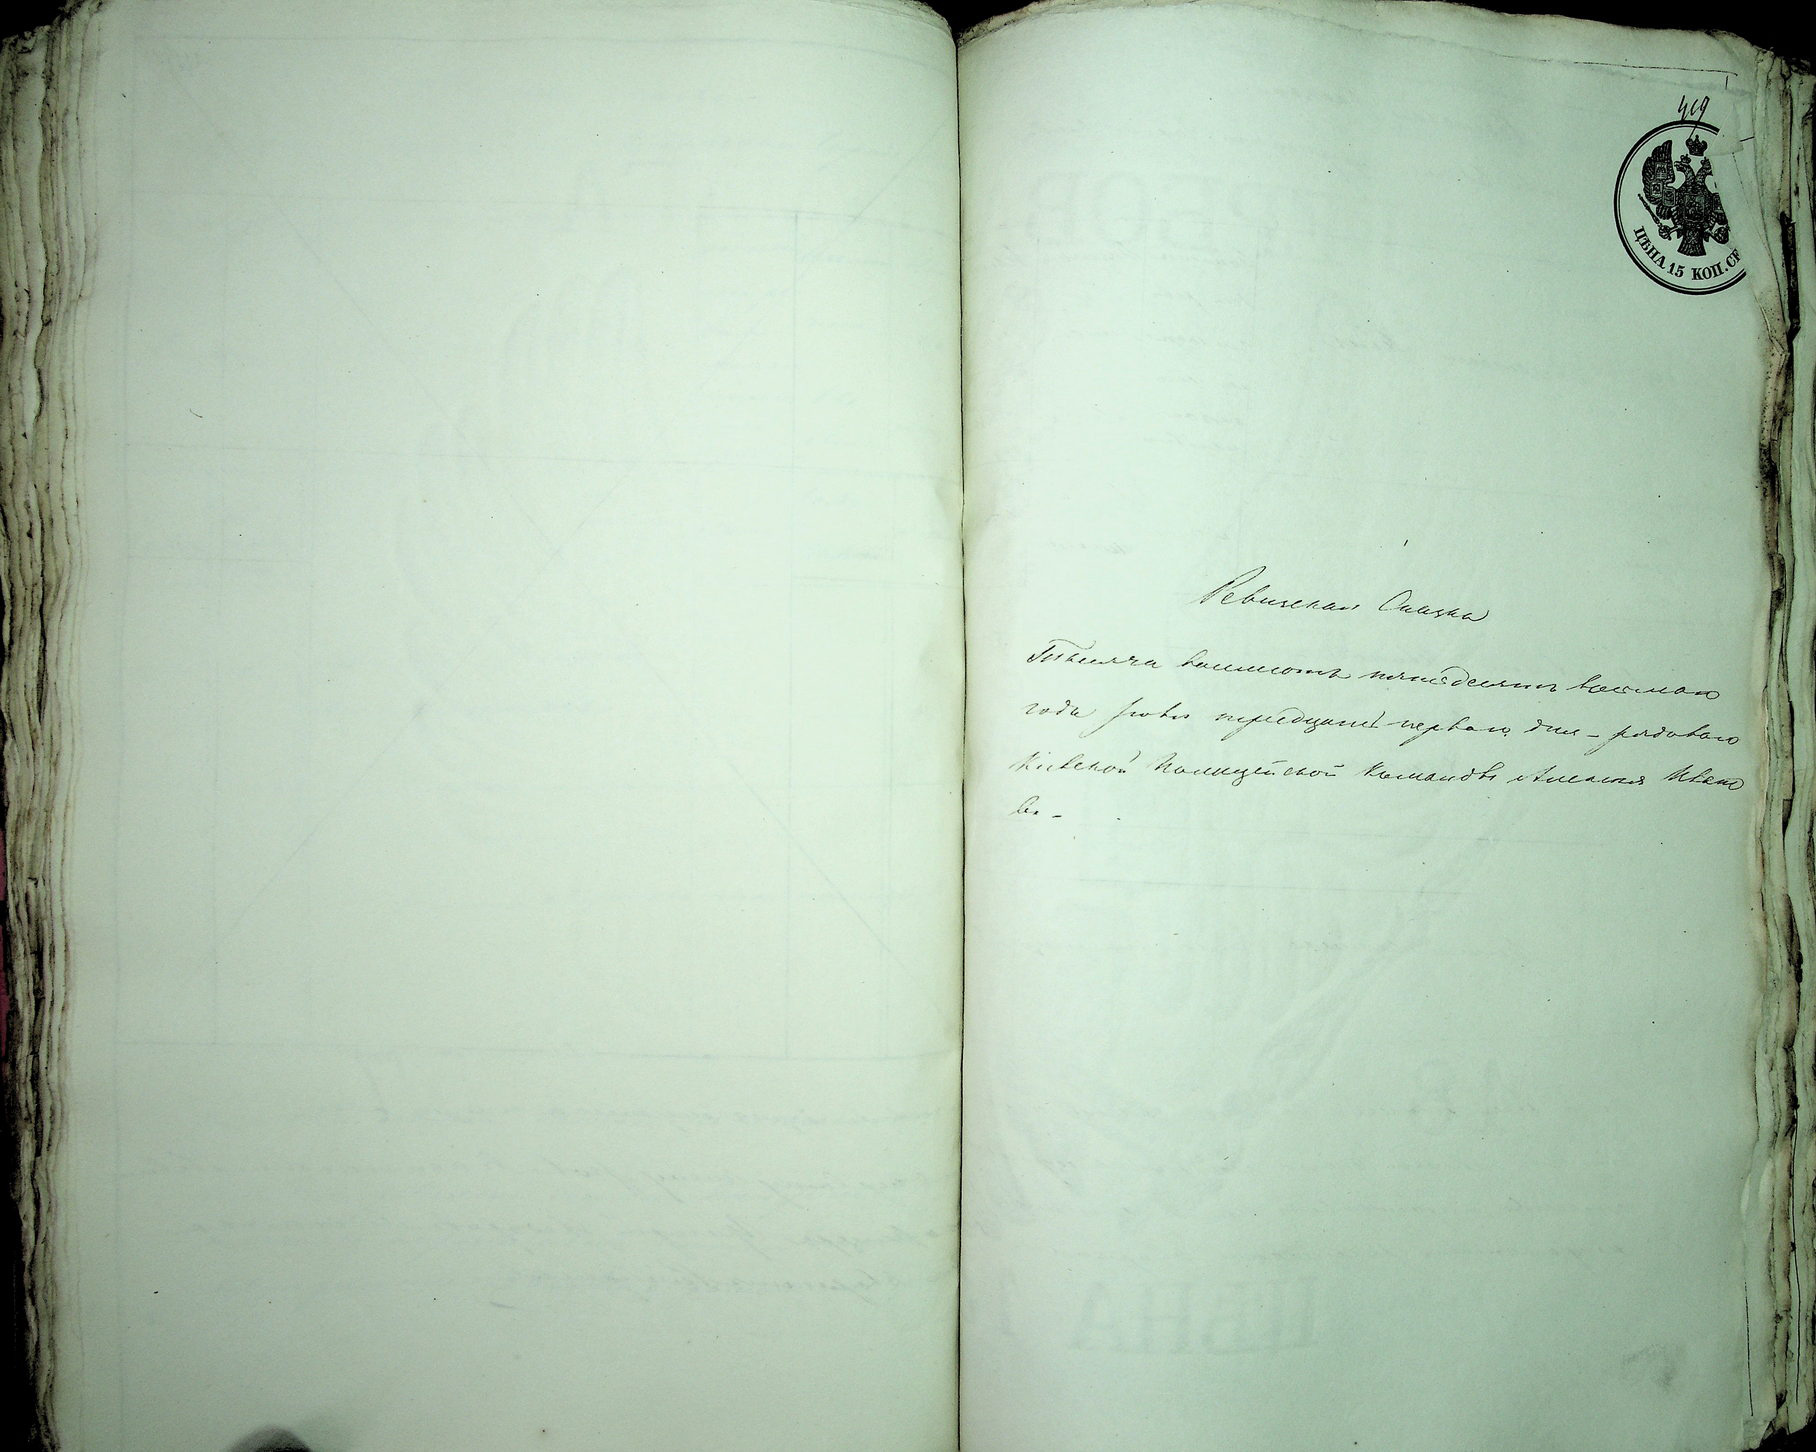 419
ЦѢНА 15 КОП. СЕ
Ревизская Сказка
Тысяча восемсотъ пятьдесятъ восмаго
года
первого дня - рядоваго
Кіевской Полицейской Команды Алексея Ивано
ва -